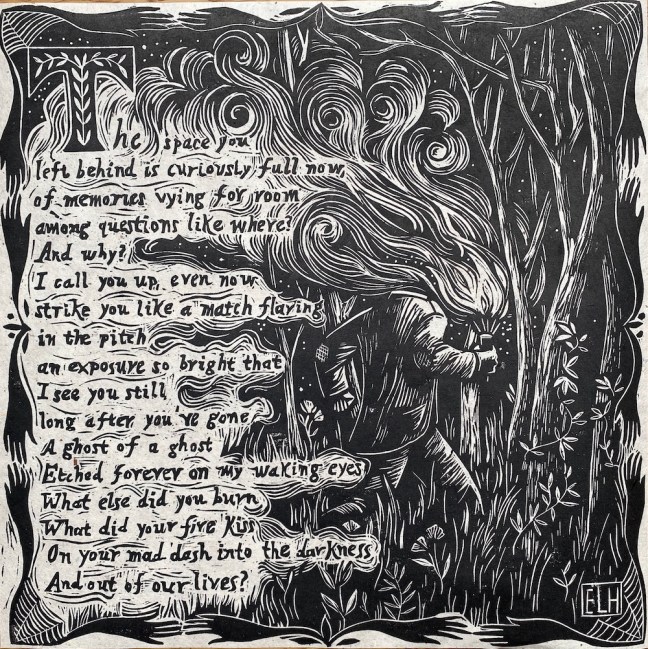 The space you
left behind is curiously full now,
of memories vying for room
among questions like where?
And why?
I call you up, even now
strike you like a match flaring
in the pitch
an exposure so bright that
I see you still
long after you've gone
A ghost of a ghost
Etched forever on my waking eyes
What else did you burn
What did your fire kiss
On your mad dash into the darkness
And out of our lives?
ELH